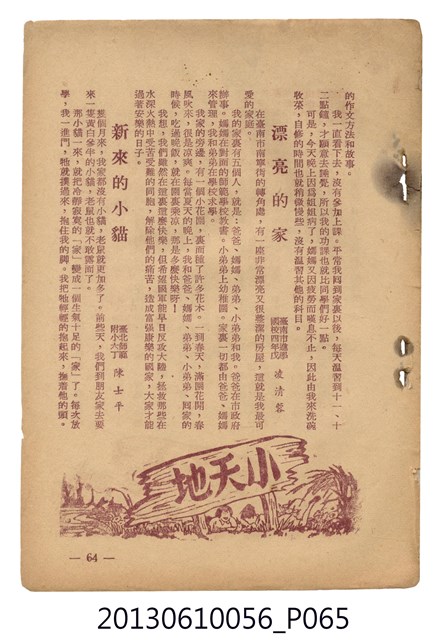 的作文方法和故事。
我一直看下去，沒有參加上課。平常我回到家裏以後，每天溫習到十一、十
二點鐘，才願意去睡覺，所以我的功課也就比同學們好一點。
可是，今天晚上因爲姐姐病了，媽媽又因疲勞而喘息不止，因此由我來洗碗
收菜，自修的時間也就稍微慢些，沒有溫習其他的科目。
漂亮的家
臺南市進學
國校四年戊 凌清蓉
在臺南市南寧街的轉角處，有一座非常漂亮又很整潔的房屋，這就是我最可
愛的家庭。
我的家裏有五個人，就是：爸爸、媽媽、弟弟、小弟弟和我。爸爸在市政府
辦事。媽媽在對面的開山學校教書。小弟弟上幼稚園。家裏一切都由爸爸、媽媽
來管理，我和弟弟在進學國校求學。
我家的旁邊，有一個小花園，裏面種了許多花木。一到春天，滿園花開，春
風吹來，很是涼爽。每當夏天的晚上，我和爸爸、媽媽、弟弟、小弟弟，圍家的
時候，吃過晚飯，就在園裏乘涼，那是多麼快樂呀！
我想，我們雖然在這裏這麼快樂，但希望國軍能早日反攻大陸，拯救那些在
水深火熱中受苦受難的同胞，解除他們的痛苦，造成富强康樂的國家，大家才能
過著安樂的日子。
新來的小貓
臺北師範
附小六丁 陳士平
幾個月來，我家都沒有小貓，老鼠就更加多了。前些天，我們到朋友家去要
來一隻黃白參半的小貓，老鼠也就不敢露面了。
那小貓一來，就把冷靜寂寞的「家」變成一個生氣十足的「家」了。每次放
學，我一進門，牠就撲過來，抱住我的脚。我把牠輕輕的抱起來，撫着他的頭。
小天地
— 64 —
20130610056_P065